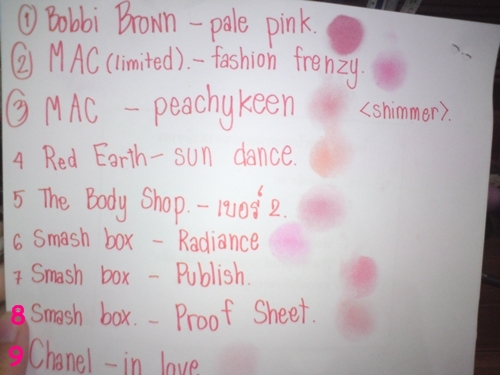 ① Bobbi Brown - pale pink.
② MAC (limited). - fashion frenzy.
③ MAC - peachykeen <shimmer>.
4 Red Earth - sun dance.
5 The Body Shop. - เบอร์ 2.
6 Smash box - Radiance
7 Smash box - Publish.
8 Smash box. - Proof Sheet.
9 Chanel - in love